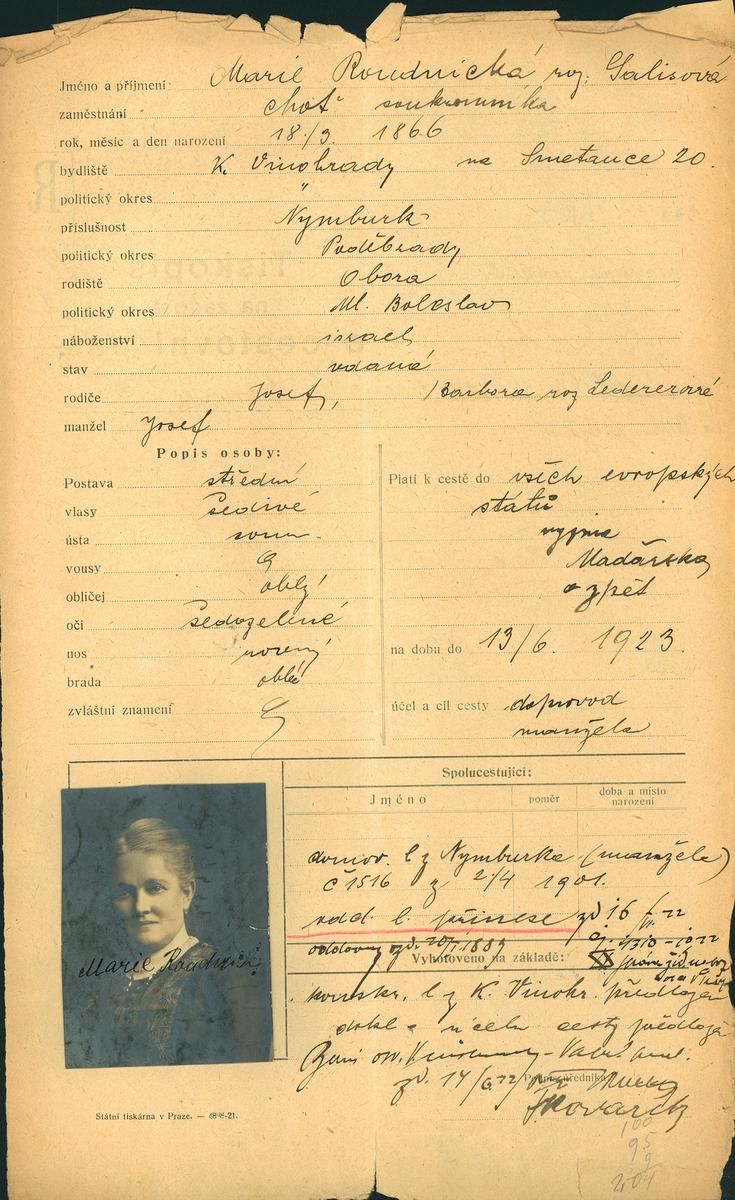 Jméno a příjmení Marie Roudnická roz. Galisová
zaměstnání choť soukromníka
rok, měsíc a den narození 18./9. 1866
bydliště K. Vinohrady na Smetance 20.
politický okres "
příslušnost Nymburk
politický okres Poděbrady
rodiště Obora
politický okres Ml. Boleslav
náboženství israel
stav vdaná
rodiče Josef, Barbora roz Ledererové
manžel Josef
Popis osoby:
Postava střední
vlasy šedivé
ústa soum.
vousy
obličej oblý
oči šedozelené
nos rovný
brada oblá
zvláštní znamení
Platí k cestě do všech evropských
států
vyjma
Maďarska
a zpět
na dobu do 13/6. 1923.
účel a cíl cesty doprovod
manžela
Spolucestující:
Jméno
poměr
doba a místo narození
domov. l z Nymburka (manžela)
č 1516 z 2/4 1901.
odd. l. přinese zd 16
oddavný
1889
Vyhotoveno na základě:
konskr. l z K. Vinohr. předložen
dokl. účelu cesty předlož
zd. 14/6 22
Podpis úředníka
JKovařík
Marie Roudnická
Státní tiskárna v Praze. —
100
95
9
204